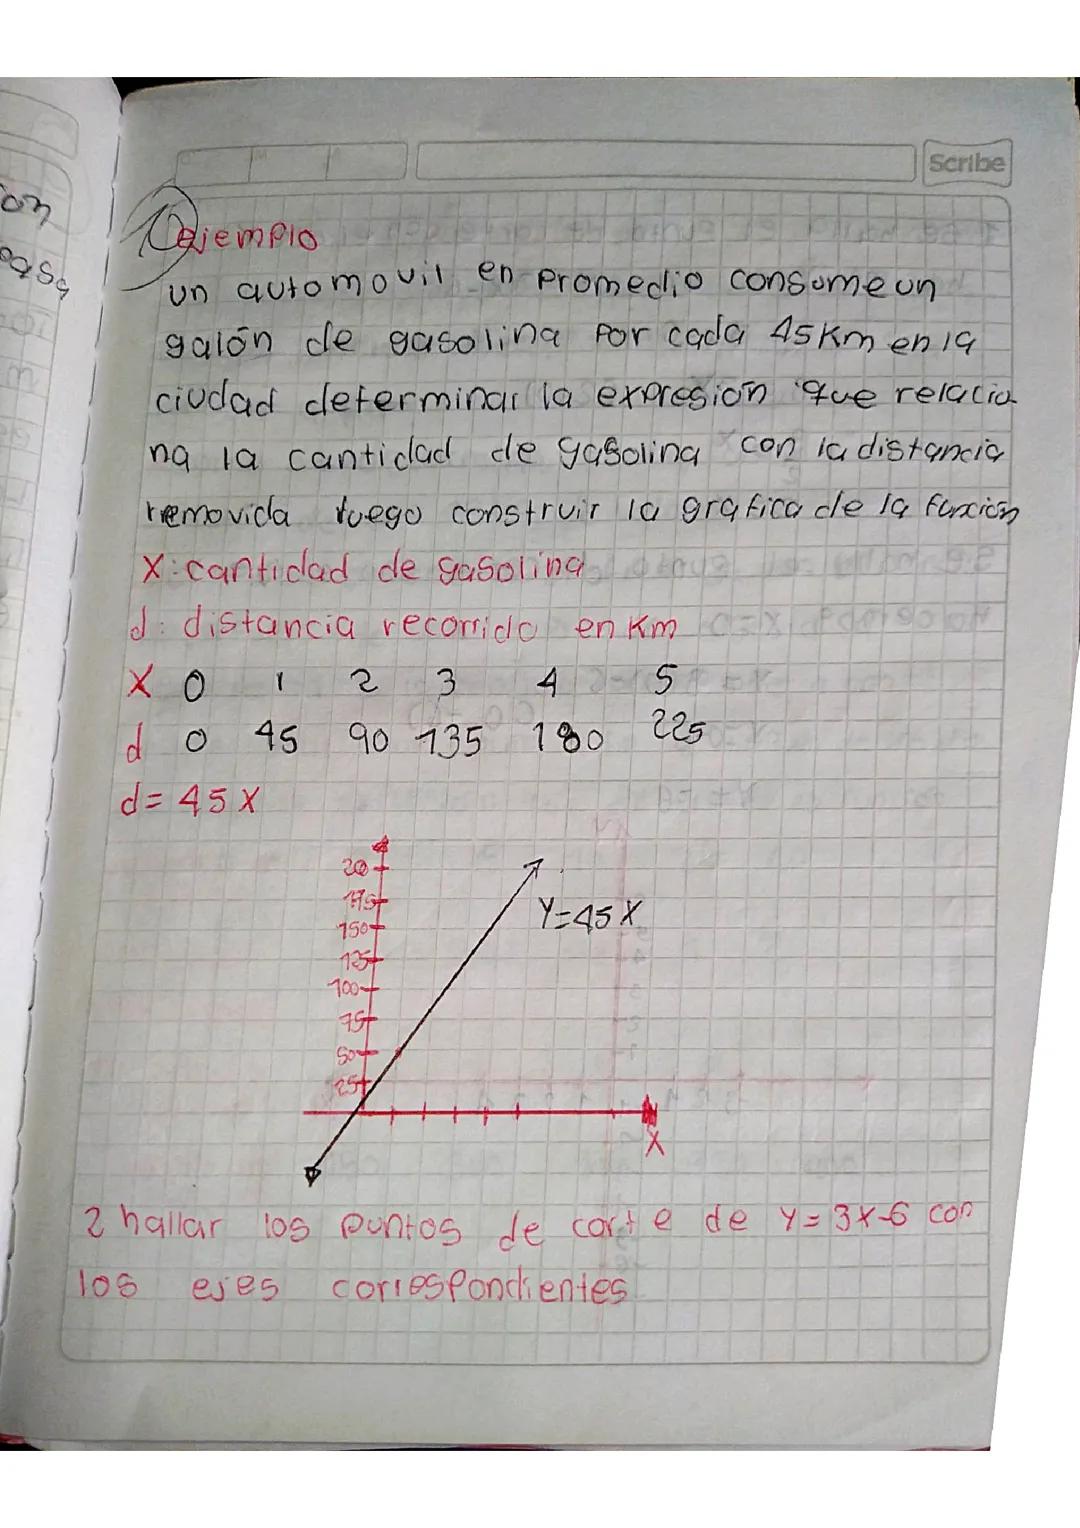 Scribe
1 ejemplo
un automovil en promedio consume un
galón de gasolina por cada 45 Km en la
ciudad determinar la expresión que relacio
na la cantidad de gasolina con la distancia
removida luego construir la grafica de la función
X: cantidad de gasolina
d: distancia recorrido en Km
X 0 1 2 3 4 5
d 0 45 90 135 180 225
d = 45 X
175
150
125
100
75
50
25
Y=45 X
X
2 hallar los puntos de corte de y = 3x-6 con
los ejes correspondientes